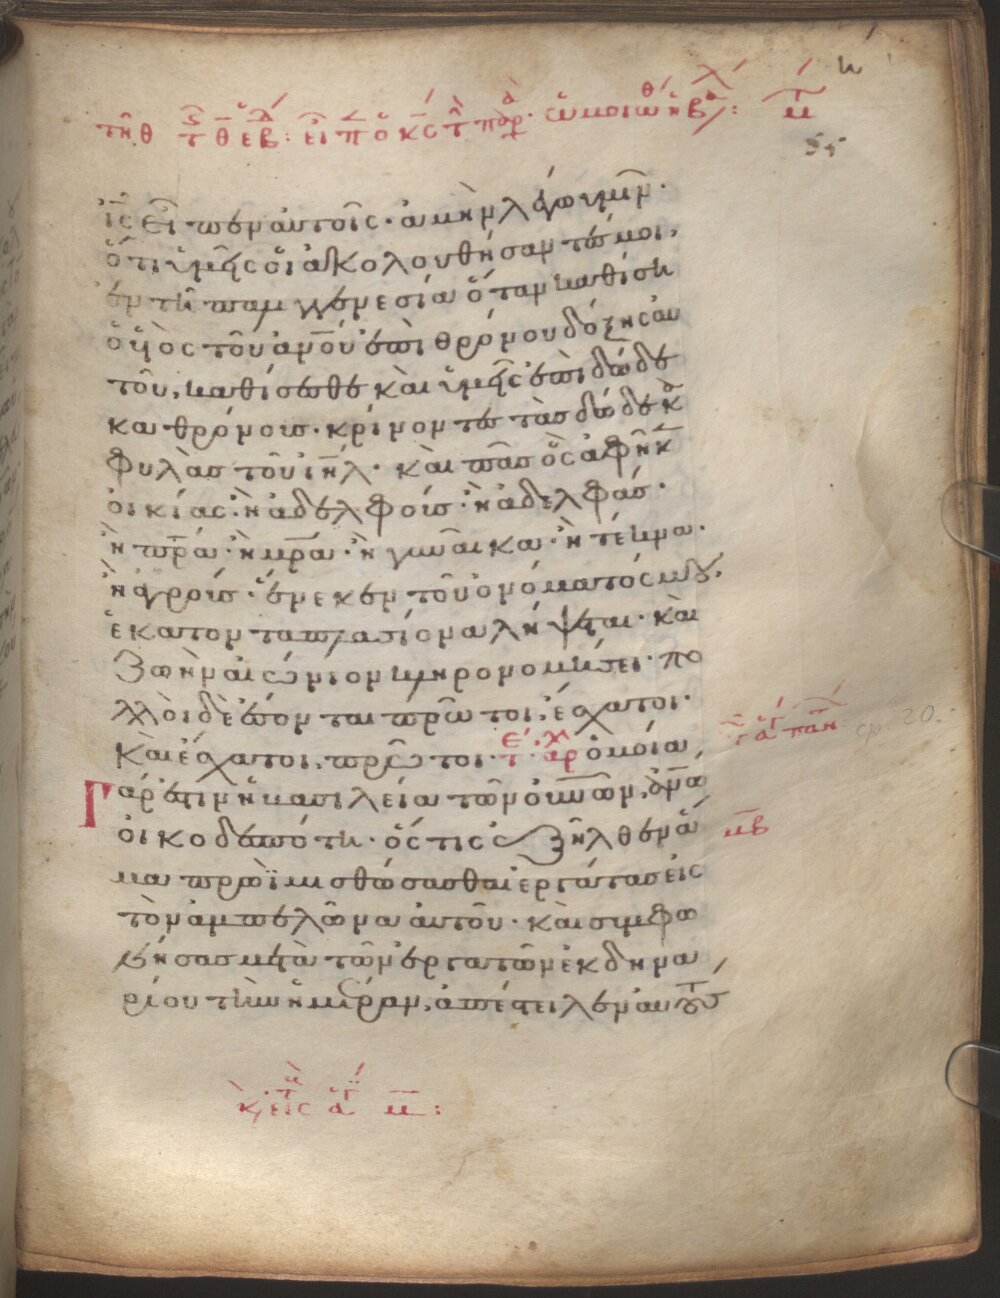 ἰς εἶπεν αὐτοῖς· ἀμὴν λέγω ὑμῖν·
ὅτι ὑμεῖς οἱ ἀκολουθήσαντές μοι,
ἐν τῆ παλιγγενεσία ὅταν καθίση
ὁ υἱὸς τοῦ ἀνου ἐπὶ θρόνου δόξης αὐ
τοῦ, καθίσεσθε καὶ ὑμεῖς ἐπὶ δώδε
κα θρόνοις· κρίνοντες τὰς δώδεκα
φυλὰς τοῦ ιηλ· καὶ πᾶς ὃς ἀφῆκ
οἰκίας· ἢ ἀδελφοὺς· ἢ ἀδελφάς·
ἢ πρα· ἢ μρα· ἢ γυναῖκα· ἢ τέκνα·
ἢ ἀγροὺς· ἕνεκεν τοῦ ὀνόματός μου,
ἑκατονταπλασίονα λήψεται· καὶ
ζωὴν αἰώνιον κληρονομήσει· πο
λλοὶ δὲ ἔσονται πρῶτοι, ἔσχατοι·
καὶ ἔσχατοι, πρῶτοι· τ αρ ὁμοία
Γάρ ἐστιν ἡ βασιλεία τῶν οὐνῶν, ἀνω
οἰκοδεσπότη· ὅστις ἐξῆλθεν ἅ
μα πρωῒ μισθώσασθαι ἐργάτας εἰς
τὸν ἀμπελῶνα αὐτοῦ· καὶ συμφω
νήσας μετὰ τῶν ἐργατῶν ἐκ δηνα
ρίου τὴν ἡμέραν, ἀπέστειλεν αὐτοὺς
μβ
20.